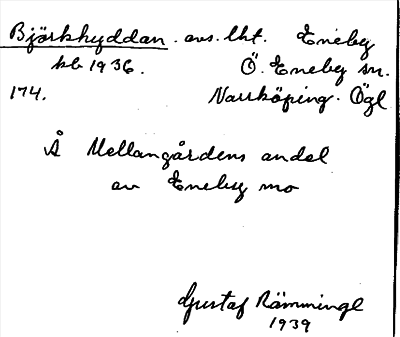 Björkhyddan. avs. lht. Eneby
kb 1936. Ö. Eneby sn.
174. Norrköping. Ögl
Å Mellangårdens andel
av Eneby mo
Gustaf Rämminge
1939